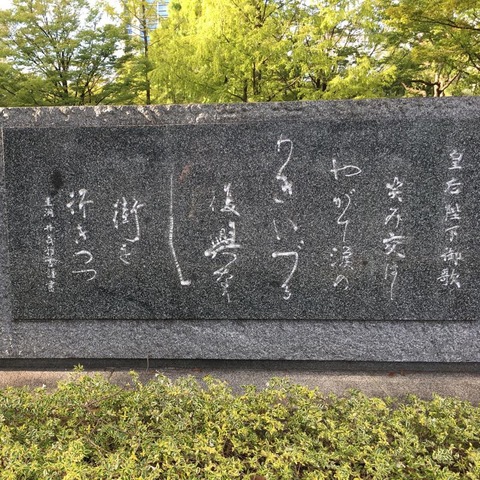 皇后陛下御歌
笑み交はし
やがて涙の
わきいづる
復興なり
し
街を
行きつつ
圭洞 井茂 謹書